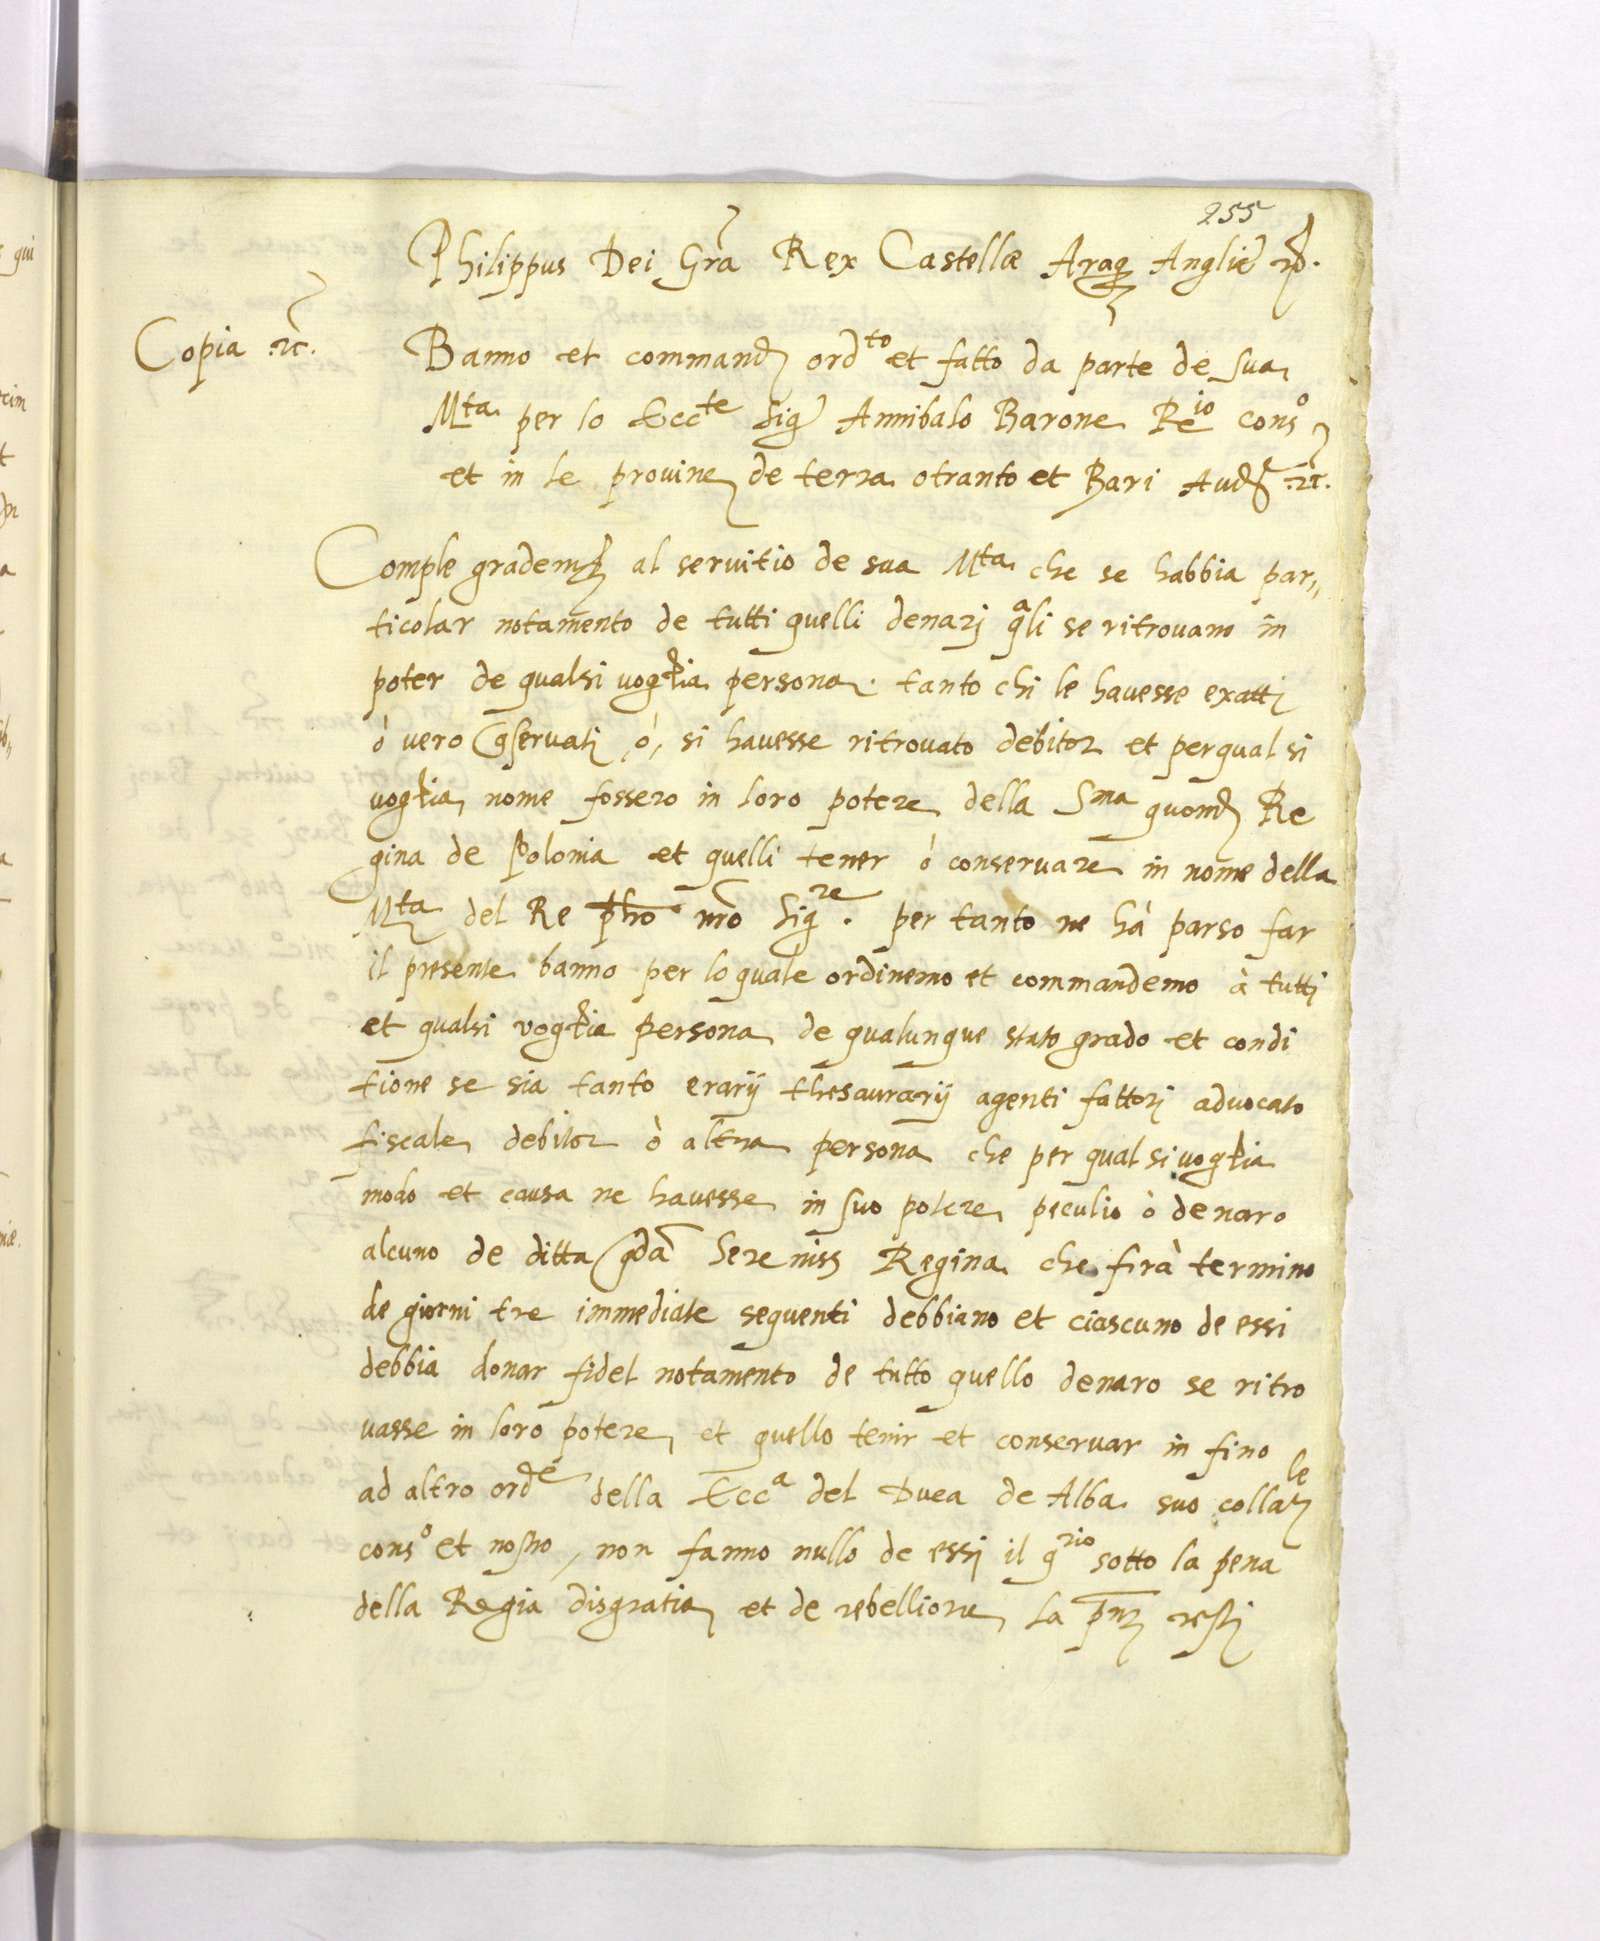 255
Philippus Dei Gra Rex Castellæ Arag Anglie
Copia etc.
Banno et command ord.to et fatto da parte de sua
M.ta per lo Ecc.te Sig Annibalo Barone Re.io cons.o
et in le provine de terra otranto et Bari Aud etc.
Comple grademte al servitio de sua M.ta che se habbia par,,
ticolar notamento de tutti quelli denarj q.ali se ritrovano in
poter de qualsi voglia persona. tanto chi le havesse exatti
ò vero conservati, ò, si havesse ritrovato debitor et per qual si
voglia nome fossero in loro potere della S.ma quond Re
gina de Polonia et quelli tener ò conservare in nome della
M.ta del Re pho nro Sig.re. per tanto ne hà parso far
il presente banno per lo quale ordinemo et commandemo à tutti
et qualsi voglia persona de qualunque stato grado et condi
tione se sia tanto erarij thesaurarij agenti fattori advocato
fiscale debitor ò altra persona che per qual si voglia
modo et causa ne havesse in suo potere peculio ò denaro
alcuno de ditta qda Sereniss Regina che frà termino
de giorni tre immediate sequenti debbiano et ciascuno de essi
debbia donar fidel notamento de tutto quello denaro se ritro
vasse in loro potere, et quello tenir et conservar in fino
ad altro ord.e della Ecc.a del Duca de Alba suo colla.le
cons.o et nostro, non fanno nullo de essi il q.rio sotto la pena
della Regia disgratia et de rebellione la pnte resti